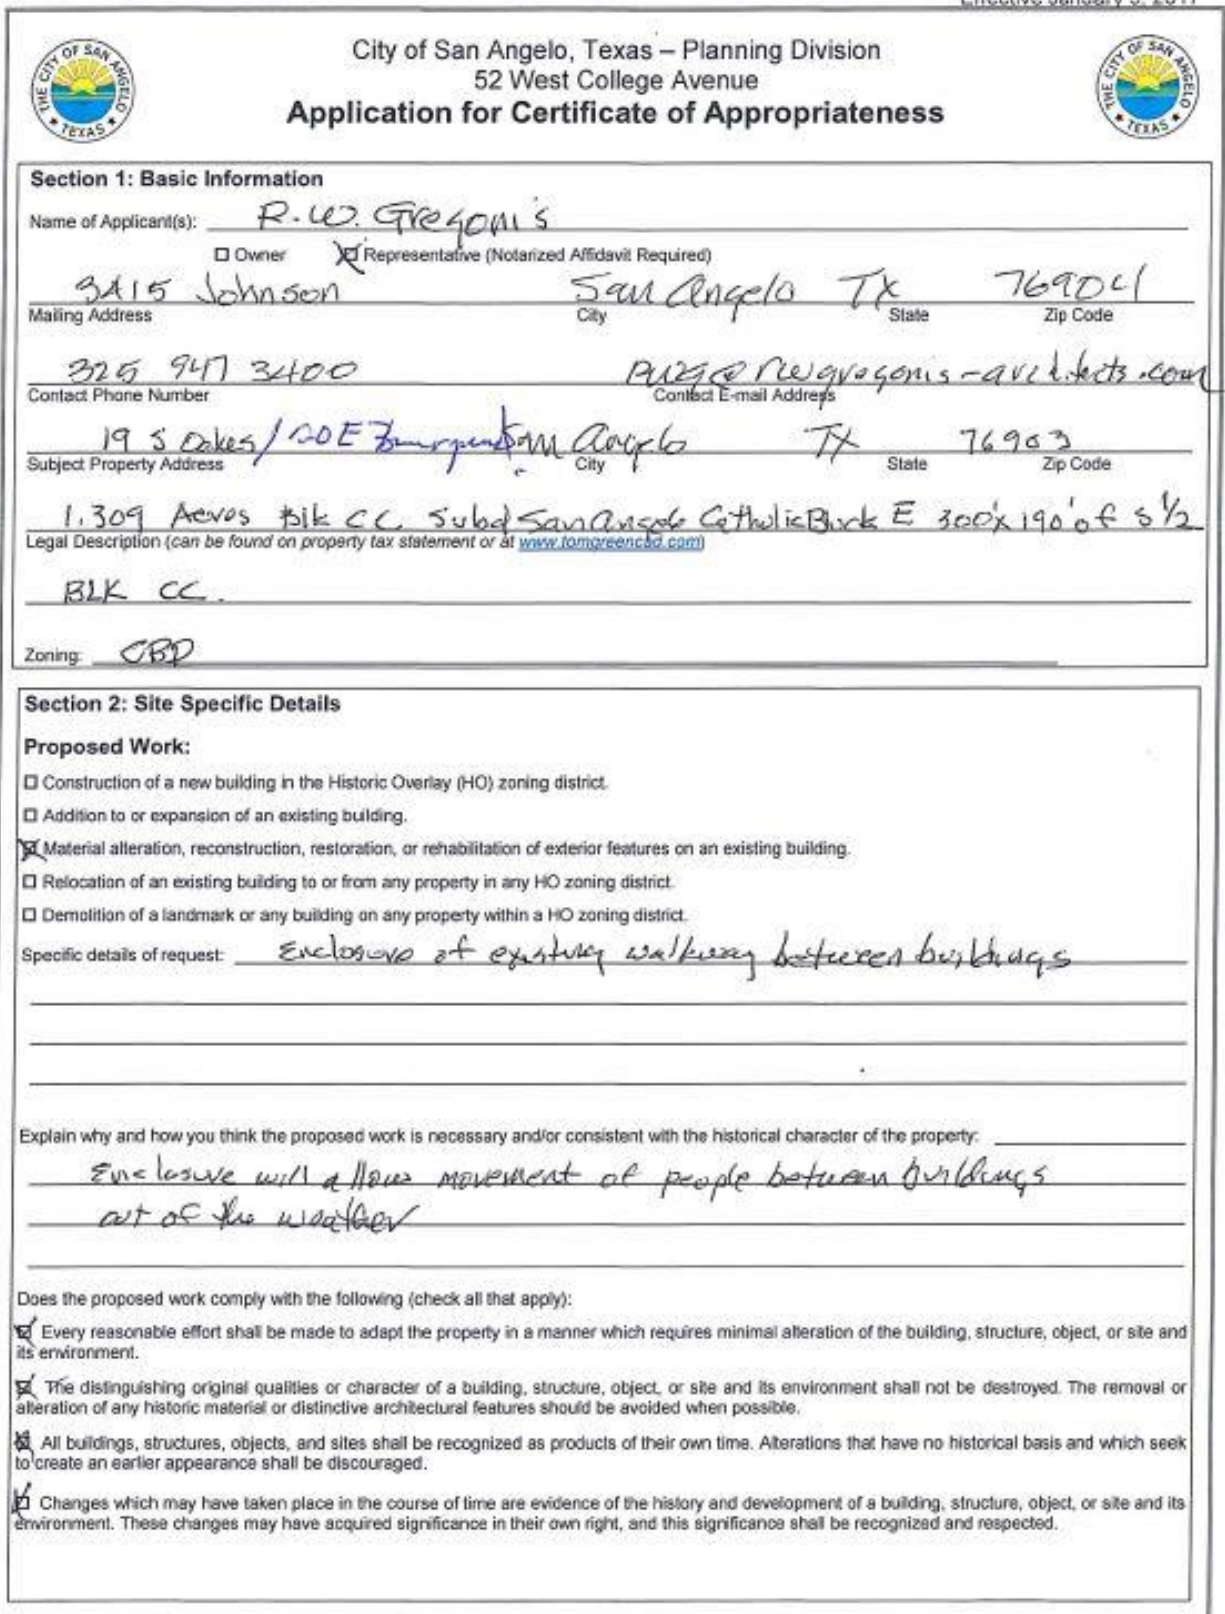 Effective January 3, 2017
THE CITY OF SAN ANGELO
TEXAS
City of San Angelo, Texas – Planning Division
52 West College Avenue
Application for Certificate of Appropriateness
THE CITY OF SAN ANGELO
TEXAS
Section 1: Basic Information
Name of Applicant(s): R.W. Gregonis
Owner Representative (Notarized Affidavit Required)
3415 Johnson San Angelo TX 76904
Mailing Address City State Zip Code
325 947 3400 @rwgregonis-architects.com
Contact Phone Number Contact E-mail Address
19 S Oakes / E San Angelo TX 76903
Subject Property Address City State Zip Code
1.309 Acres Blk CC Subd San Angelo Catholic Block E 300'x190' of S 1/2
Legal Description (can be found on property tax statement or at www.tomgreencad.com)
BLK CC.
Zoning: CBD
Section 2: Site Specific Details
Proposed Work:
Construction of a new building in the Historic Overlay (HO) zoning district.
Addition to or expansion of an existing building.
Material alteration, reconstruction, restoration, or rehabilitation of exterior features on an existing building.
Relocation of an existing building to or from any property in any HO zoning district.
Demolition of a landmark or any building on any property within a HO zoning district.
Specific details of request: Enclosure of existing walkway between buildings
Explain why and how you think the proposed work is necessary and/or consistent with the historical character of the property:
Enclosure will allow movement of people between buildings
out of the weather
Does the proposed work comply with the following (check all that apply):
Every reasonable effort shall be made to adapt the property in a manner which requires minimal alteration of the building, structure, object, or site and
its environment.
The distinguishing original qualities or character of a building, structure, object, or site and its environment shall not be destroyed. The removal or
alteration of any historic material or distinctive architectural features should be avoided when possible.
All buildings, structures, objects, and sites shall be recognized as products of their own time. Alterations that have no historical basis and which seek
to create an earlier appearance shall be discouraged.
Changes which may have taken place in the course of time are evidence of the history and development of a building, structure, object, or site and its
environment. These changes may have acquired significance in their own right, and this significance shall be recognized and respected.